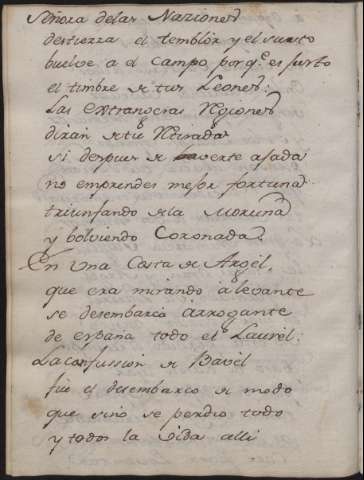 Señora delas Naziones
destierra el temblòr y el susto
buelve a el campo, porq.e es justo
el timbre de tus Leones:
Las extrangeras Regiones
diràn de tu Retirada
si despues de haverte asada
no emprendes mejor fortuna
triunfando de la Moruna
y bolviendo Coronada.
En Una Costa de Argèl,
que era mirando à levante
se desembarcò arrogante
de españa todo el Laurèl:
La confussion de Bavèl
fue el desembarco de modo
que sino se perdio todo
y todos la vida alli